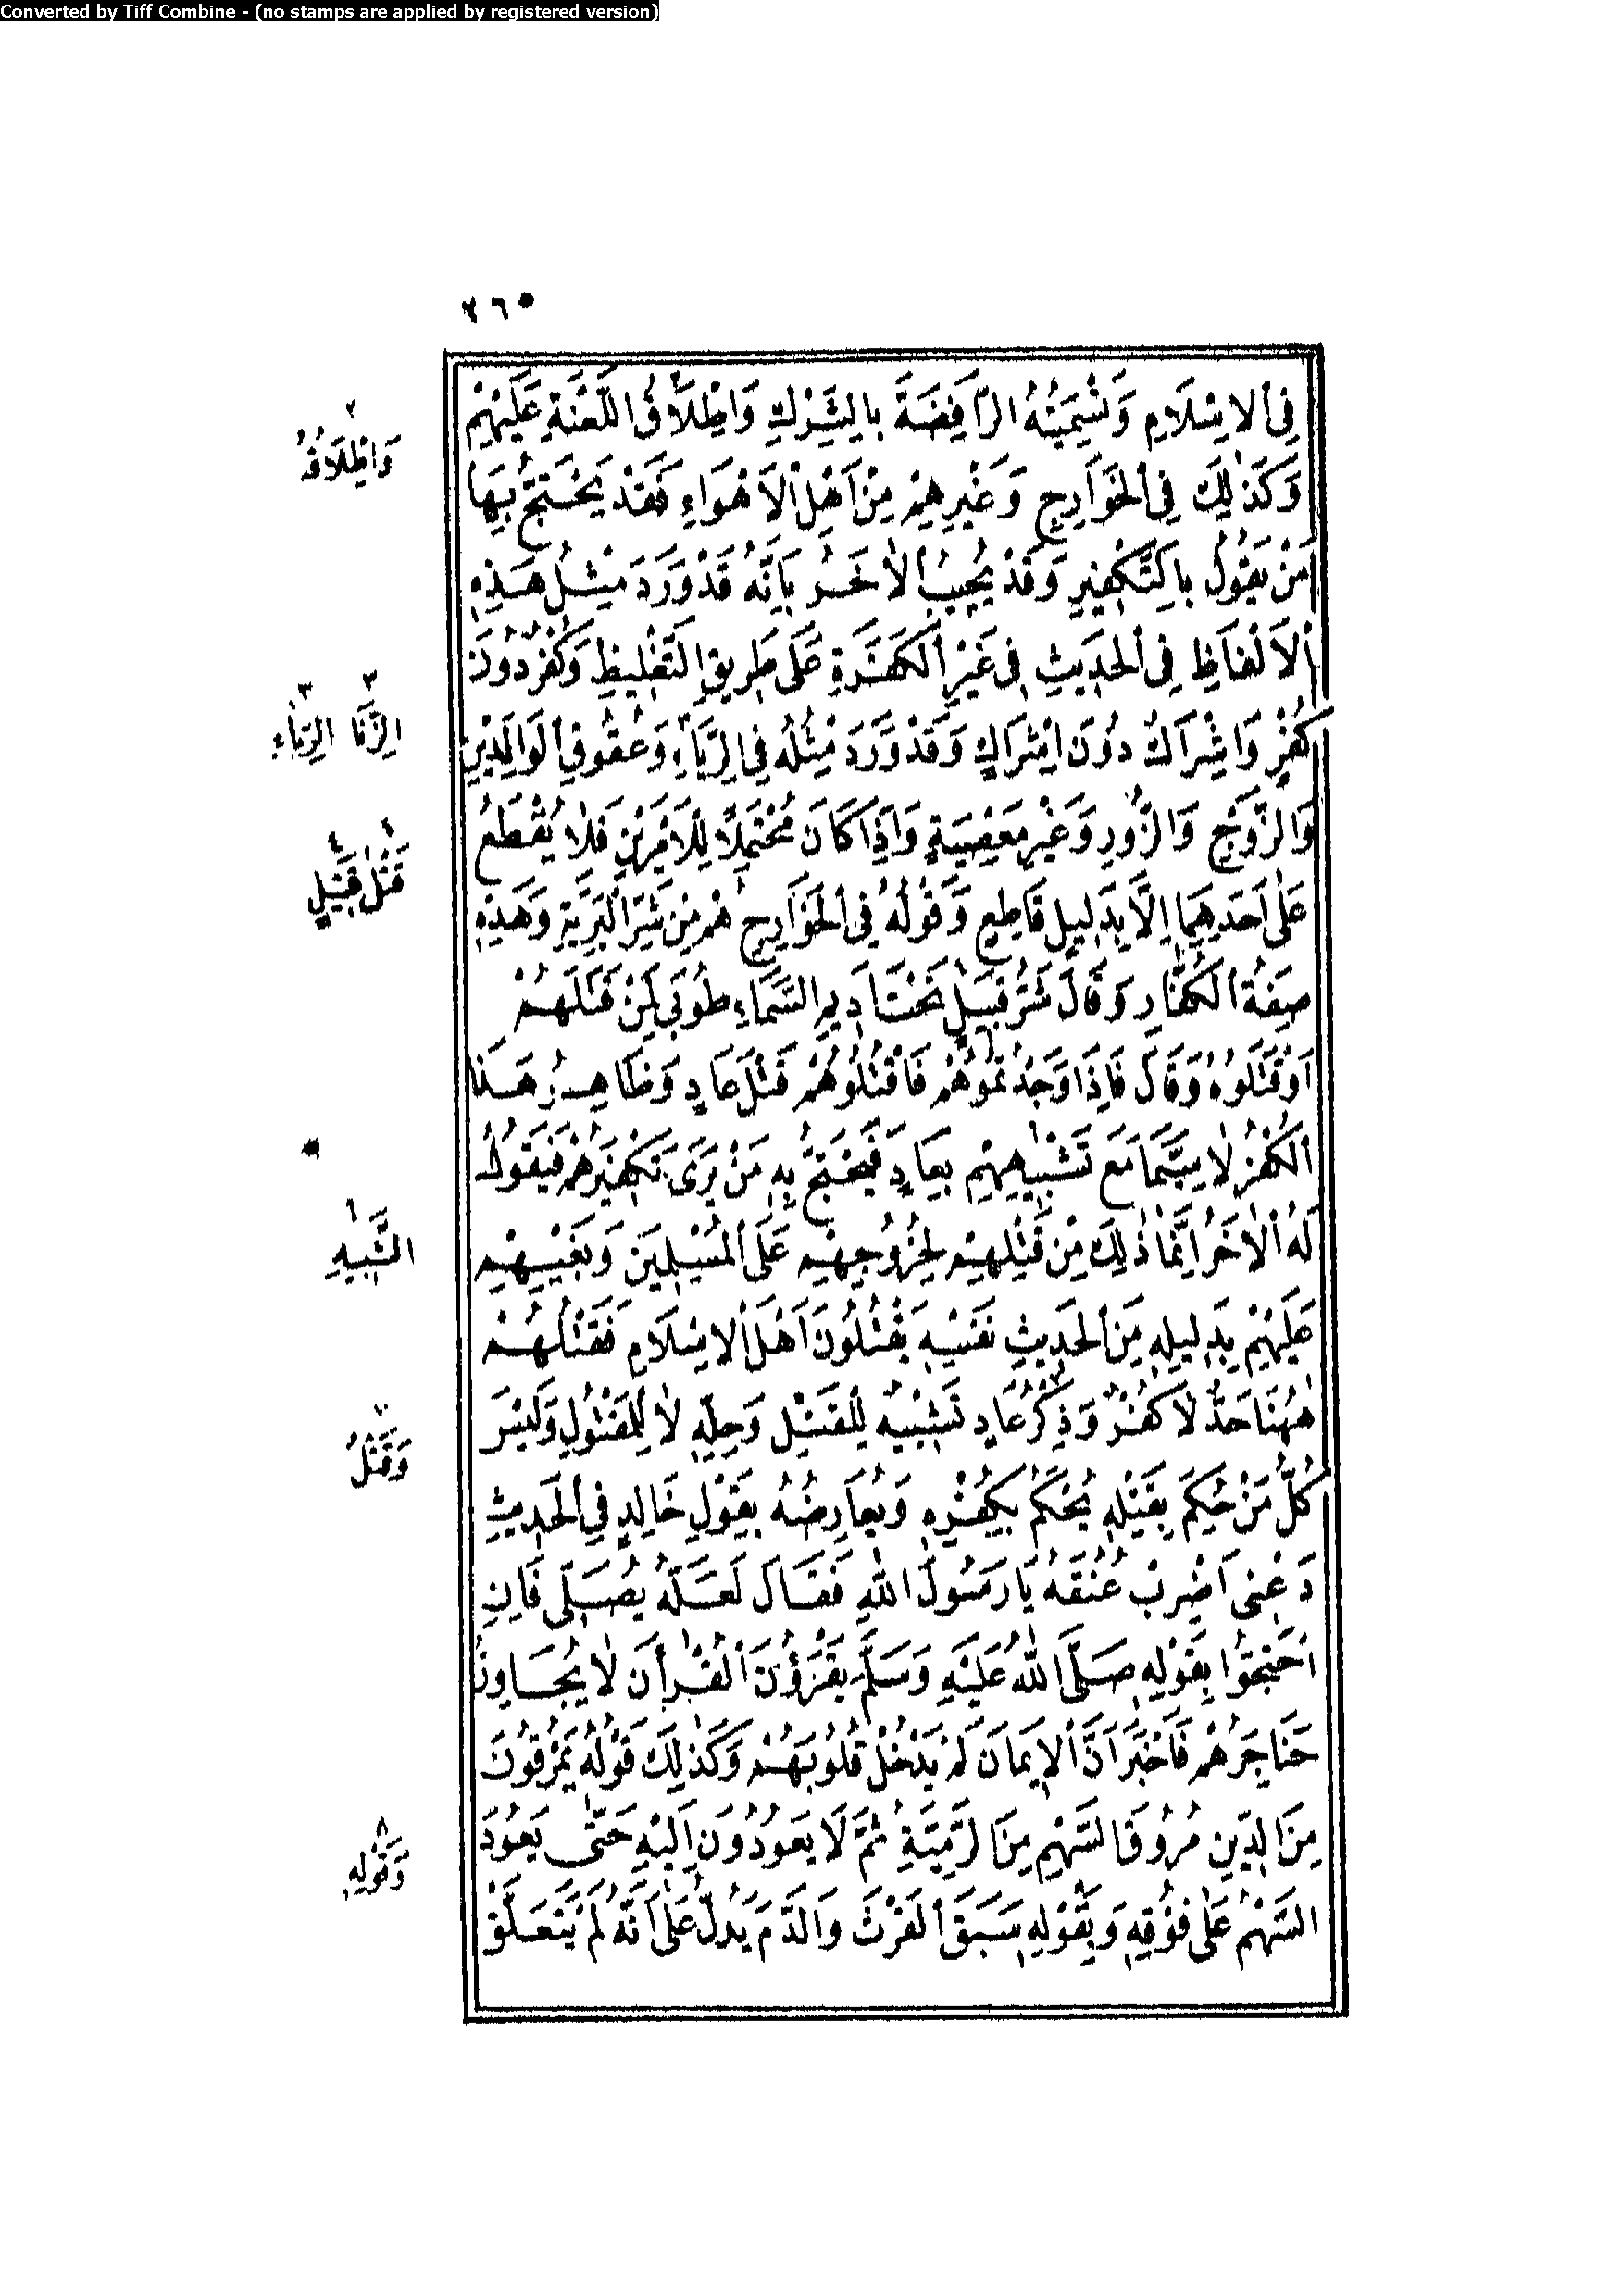 Converted by Tiff Combine - (no stamps are applied by registered version)
٢٦٥
فِي الْإِسْلَامِ وَتَسْمِيَتُهُ الرَّافِضَةَ بِالشِّرْكِ وَإِطْلَاقُ اللَّعْنَةِ عَلَيْهِمْ
وَكَذٰلِكَ فِي الْخَوَارِجِ وَغَيْرِهِمْ مِنْ أَهْلِ الْأَهْوَاءِ فَقَدْ يَحْتَجُّ بِهَا
مَنْ يَقُولُ بِالتَّكْفِيرِ وَقَدْ يُجِيبُ الْآخَرُ بِأَنَّهُ قَدْ وَرَدَ مِثْلُ هٰذِهِ
الْأَلْفَاظِ فِي الْحَدِيثِ فِي غَيْرِ الْكَفَرَةِ عَلَى طَرِيقِ التَّغْلِيظِ وَكُفْرٌ دُونَ
كُفْرٍ وَإِشْرَاكٌ دُونَ إِشْرَاكٍ وَقَدْ وَرَدَ مِثْلُهُ فِي الرِّيَاءِ وَعُقُوقِ الْوَالِدَيْنِ
وَالزَّوْجِ وَالزُّورِ وَغَيْرِ مَعْصِيَةٍ وَإِذَا كَانَ مُحْتَمِلًا لِلْأَمْرَيْنِ فَلَا يُقْطَعُ
عَلَى أَحَدِهِمَا إِلَّا بِدَلِيلٍ قَاطِعٍ وَقَوْلُهُ فِي الْخَوَارِجِ هُمْ مِنْ شَرِّ الْبَرِيَّةِ وَهٰذِهِ
صِفَةُ الْكُفَّارِ وَقَالَ شَرُّ قَبِيلٍ تَحْتَ أَدِيمِ السَّمَاءِ طُوبَى لِمَنْ قَتَلَهُمْ
أَوْ قَتَلُوهُ وَقَالَ فَإِذَا وَجَدْتُمُوهُمْ فَاقْتُلُوهُمْ قَتْلَ عَادٍ وَظَاهِرُ هٰذَا
الْكُفْرُ لَا سِيَّمَا مَعَ تَشْبِيهِهِمْ بِعَادٍ فَيَحْتَجُّ بِهِ مَنْ يَرَى تَكْفِيرَهُمْ فَيَقُولُ
لَهُ الْآخَرُ إِنَّمَا ذٰلِكَ مِنْ قَتْلِهِمْ لِخُرُوجِهِمْ عَلَى الْمُسْلِمِينَ وَبَغْيِهِمْ
عَلَيْهِمْ بِدَلِيلِهِ مِنَ الْحَدِيثِ نَفْسِهِ يَقْتُلُونَ أَهْلَ الْإِسْلَامِ فَقَتْلُهُمْ
هٰهُنَا حَدٌّ لَا كُفْرٌ وَذِكْرُ عَادٍ تَشْبِيهٌ لِلْقَتْلِ وَحِلِّهِ لَا لِلْمَقْتُولِ وَلَيْسَ
كُلُّ مَنْ حُكِمَ بِقَتْلِهِ يُحْكَمُ بِكُفْرِهِ وَيُعَارِضُهُ بِقَوْلِ خَالِدٍ فِي الْحَدِيثِ
دَعْنِي أَضْرِبْ عُنُقَهُ يَا رَسُولَ اللهِ فَقَالَ لَعَلَّهُ يُصَلِّي فَإِنِ
احْتَجُّوا بِقَوْلِهِ صَلَّى اللهُ عَلَيْهِ وَسَلَّمَ يَقْرَؤُنَ الْقُرْآنَ لَا يُجَاوِزُ
حَنَاجِرَهُمْ فَأَخْبَرَ أَنَّ الْإِيمَانَ لَمْ يَدْخُلْ قُلُوبَهُمْ وَكَذٰلِكَ قَوْلُهُ يَمْرُقُونَ
مِنَ الدِّينِ مُرُوقَ السَّهْمِ مِنَ الرَّمِيَّةِ ثُمَّ لَا يَعُودُونَ إِلَيْهِ حَتَّى يَعُودَ
السَّهْمُ عَلَى فُوقِهِ وَبِقَوْلِهِ سَبَقَ الْفَرْثَ وَالدَّمَ يَدُلُّ عَلَى أَنَّهُ لَمْ يَتَعَلَّقْ
٢
وَإِطْلَاقُهُ
٣ ٣
الزِّنَا الرِّبَاءِ
٤ ٤
قَتْلٰى قَتِيلٍ
٦
التَّشْبِيهِ
٧
وَقَتْلُ
٨
وَقَوْلِهِ